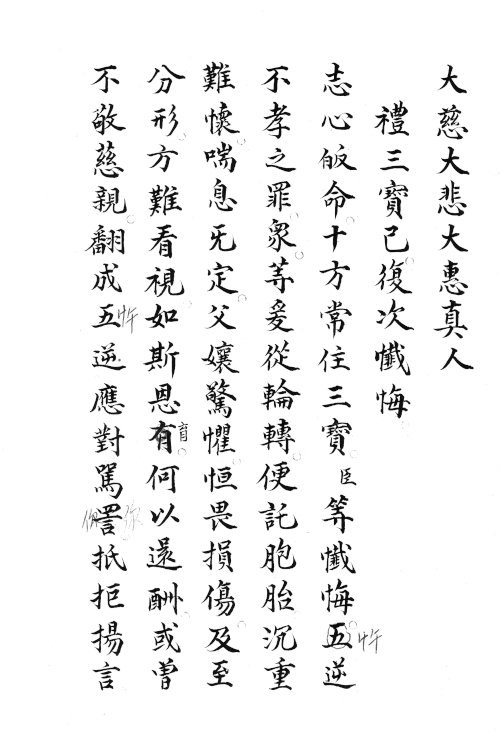 大慈大悲大惠真人
禮三寶已復次懺悔
志心皈命十方常住三寶臣等懺悔五逆
忤
不孝之罪衆等爰從輪轉便託胞胎沉重
難懷喘息旡定父孃驚懼恒畏損傷及至
分形方難看視如斯恩有何以還酬或曾
育
不敬慈親翻成五逆應對罵詈抵拒揚言
忤